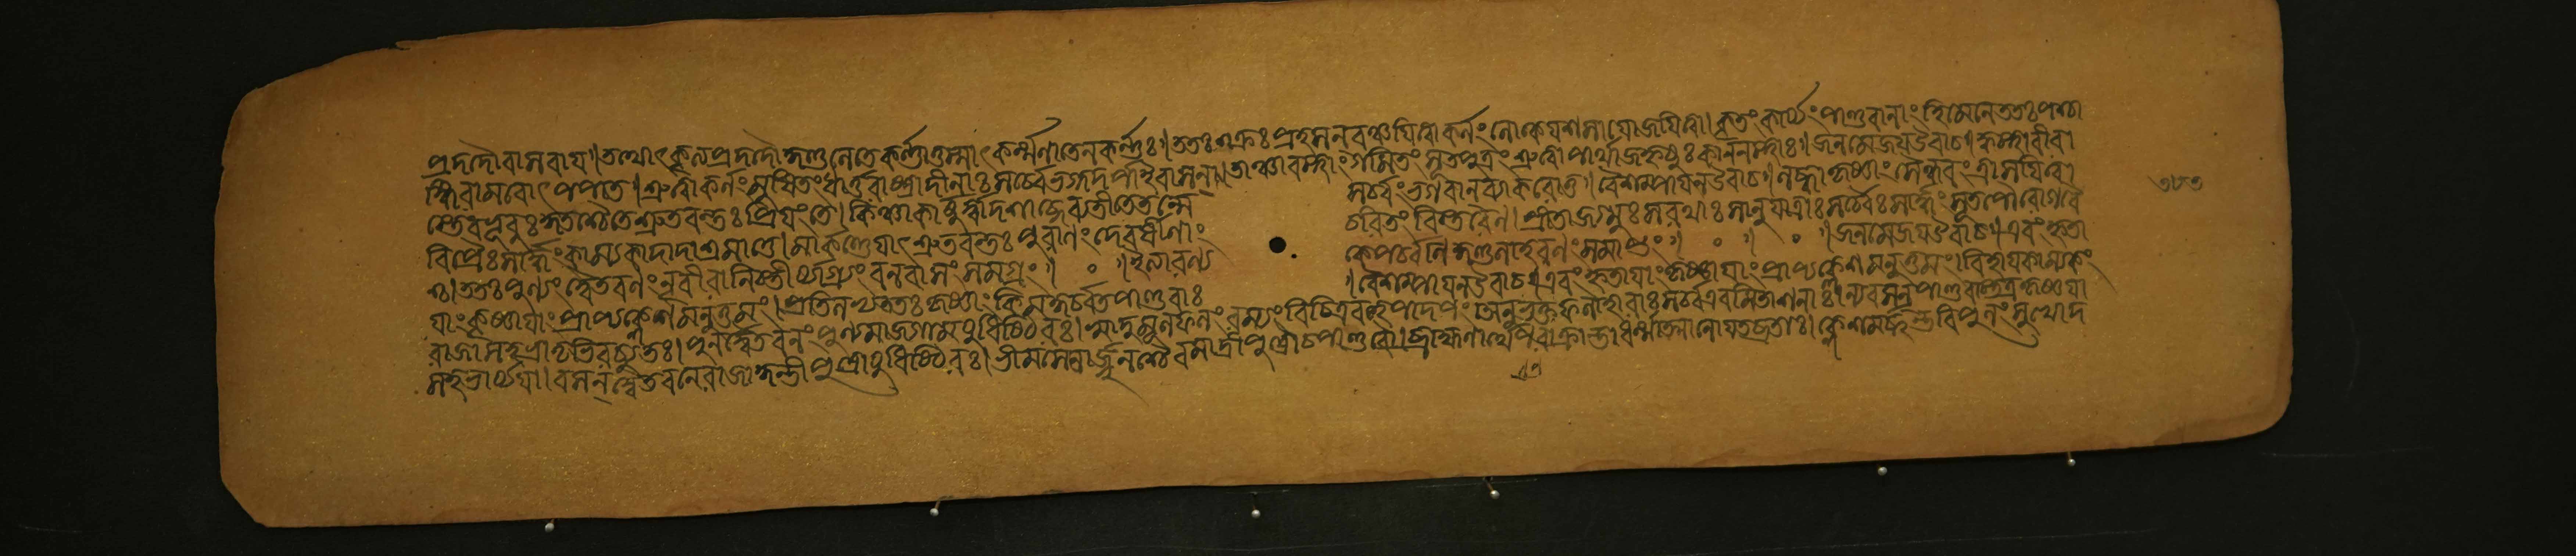 প্রদদৌবাসবায়৷তথোৎকৃত্যপ্রদদৌকুণ্ডলেতেকর্ণ্ণাত্তস্মাৎকর্ম্মণাতেনকর্ণ্ণঃ৷ততঃশক্রঃপ্রহসনবঞ্চয়িত্বাকর্ণংলোকেযশসাযোজয়িত্বা৷কৃতংকার্য্যংপাণ্ডবানাংহিমেনেততঃপশ্চা
দ্দিবমেবোৎপপাত৷শ্রুত্বাকর্ণংমুষিতংধার্ত্তরাষ্ট্রাদীনাঃসর্ব্বেভগ্নদর্পাইবাসন্৷৷তাঞ্চাবস্থাংগমিতংসূতপুত্রংশ্রুত্বাপার্থাজহৃষুঃকাননস্থাঃ৷৷জনমেজয়উবাচ৷ক্বস্থাবীরা
স্তেবভূবুঃকুতশ্চৈতেশ্রুতবন্তঃপ্রিয়ংতে৷কিঞ্চাকার্ষুর্দ্বাদশাব্দেব্যতীতেতন্মে সর্ব্বংভগবানব্যাকরোতু৷৷বৈশম্পায়নউবাচ৷লব্ধ্বাকৃষ্ণাংসৈন্ধবংদ্রাবয়িত্বা
বিপ্রৈঃসার্দ্ধংকাম্যকাদাদাশ্রমাত্তে৷মার্কণ্ডেয়াৎশ্রুতবন্তঃপুরাণংদেবর্ষীণাং চরিতংবিস্তরেণ৷প্রীতাজগ্মুঃসরথাঃসানুযাত্রাঃসর্ব্বৈঃসার্দ্ধংসূতপৌরোগবৈ
শ্চ৷ততঃপুণ্যংদ্বৈতবণংনৃবীরানিস্তীর্য্যোগ্র্যংবনবাসংসমগ্রং৷৷ ৷৷ইত্যারণ্য কেপর্ব্বনিকুণ্ডলাহরণংসমাপ্তং৷৷ ৷৷ ৷৷জনমেজয়উবাচ৷এবংহৃতা
য়াংকৃষ্ণায়াংপ্রাপ্যক্লেশমনুত্তমং৷প্রতিলভ্যততঃকৃষ্ণাংকিমকুর্ব্বতপাণ্ডবাঃ ৷৷বৈশম্পায়নউবাচ৷এবংহৃতায়াংকৃষ্ণায়াংপ্রাপ্যক্লেশমনুত্তমং৷বিহায়কাম্যকং
রাজাসহভ্রাতৃভিরচ্যুতঃ৷পুনর্দ্বৈতবনংপুণ্যমাজগামযুধিষ্ঠিরঃ৷স্বাদুমূলফলংরম্যংবিচিত্রবহুপাদপং৷অনুগুপ্তফলাহারাঃসর্ব্বএবমিতাশনাঃ৷ন্যবসনপাণ্ডবাস্তত্রকৃষ্ণয়া
সহভার্য্যয়া৷বসন্দ্বৈতবনেরাজাকুন্তীপুত্রোযুধিষ্ঠিরঃ৷ভীমসেনোর্জ্জুনশ্চৈবমাদ্রীপুত্রৌচপাণ্ডবৌ৷ব্রাহ্মণার্থেপরাক্রান্তাধর্ম্মাত্মানোযতব্রতাঃ৷ক্লেশমর্চ্ছন্তবিপুলংসুখোদ